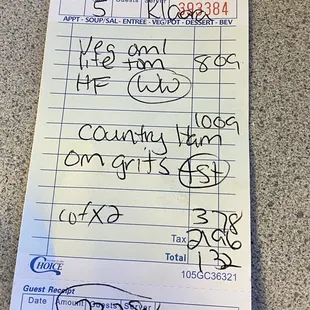 Guests Server
5 393384
APPT - SOUP/SAL - ENTREE - VEG/POT - DESSERT - BEV
Veg oml
lite tom 809
HF WW
1009
Country Ham
om grits tst
cof x2 378
Tax 2196
Total 132
CHOICE 105GC36321
Guest Receipt
Date Amount Guests Server